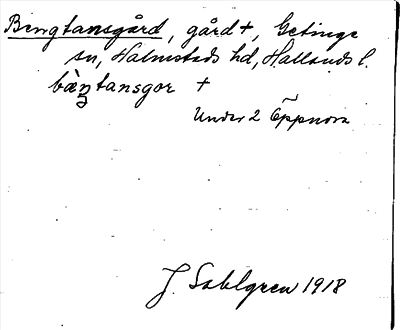 Bengtansgård, gård †, Getinge
sn, Halmstads hd, Hallands l.
bàŋtansgor †
Under 2 Öppnora
J. Sahlgren 1918